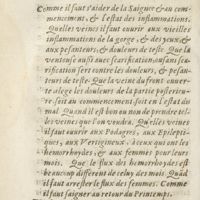 Comme il faut s'aider de la Saignee & au com-
mencement, & l'estat des inflammations.
Quelles veines il faut ouurir aux vieilles
inflammations de la gorge, & des yeux, & aux
pesanteurs, & douleurs de teste. Que la
ventouse aussi auec scarification, ou sans sca-
rification sert contre les douleurs, & pesan-
teurs de teste. Que la veine du front ouuer-
te allege les douleurs de la partie posterieu-
re, soit au commencement soit en l'estat du
mal. Quand il est bon ou non de prendre tel-
les veines que l'on voudra. Quelles veines
il faut ouurir aux Podagres, aux Epilepti-
ques, aux Vertigineux, à ceux qui ont les
hemorrhoydes, & aux femmes pour leurs
mois. Que le flux des hemorrhoydes est
beaucoup different de celuy des mois. Quãd
il faut arrester le flux des femmes. Comme
il faut saigner au retour du Printemps.